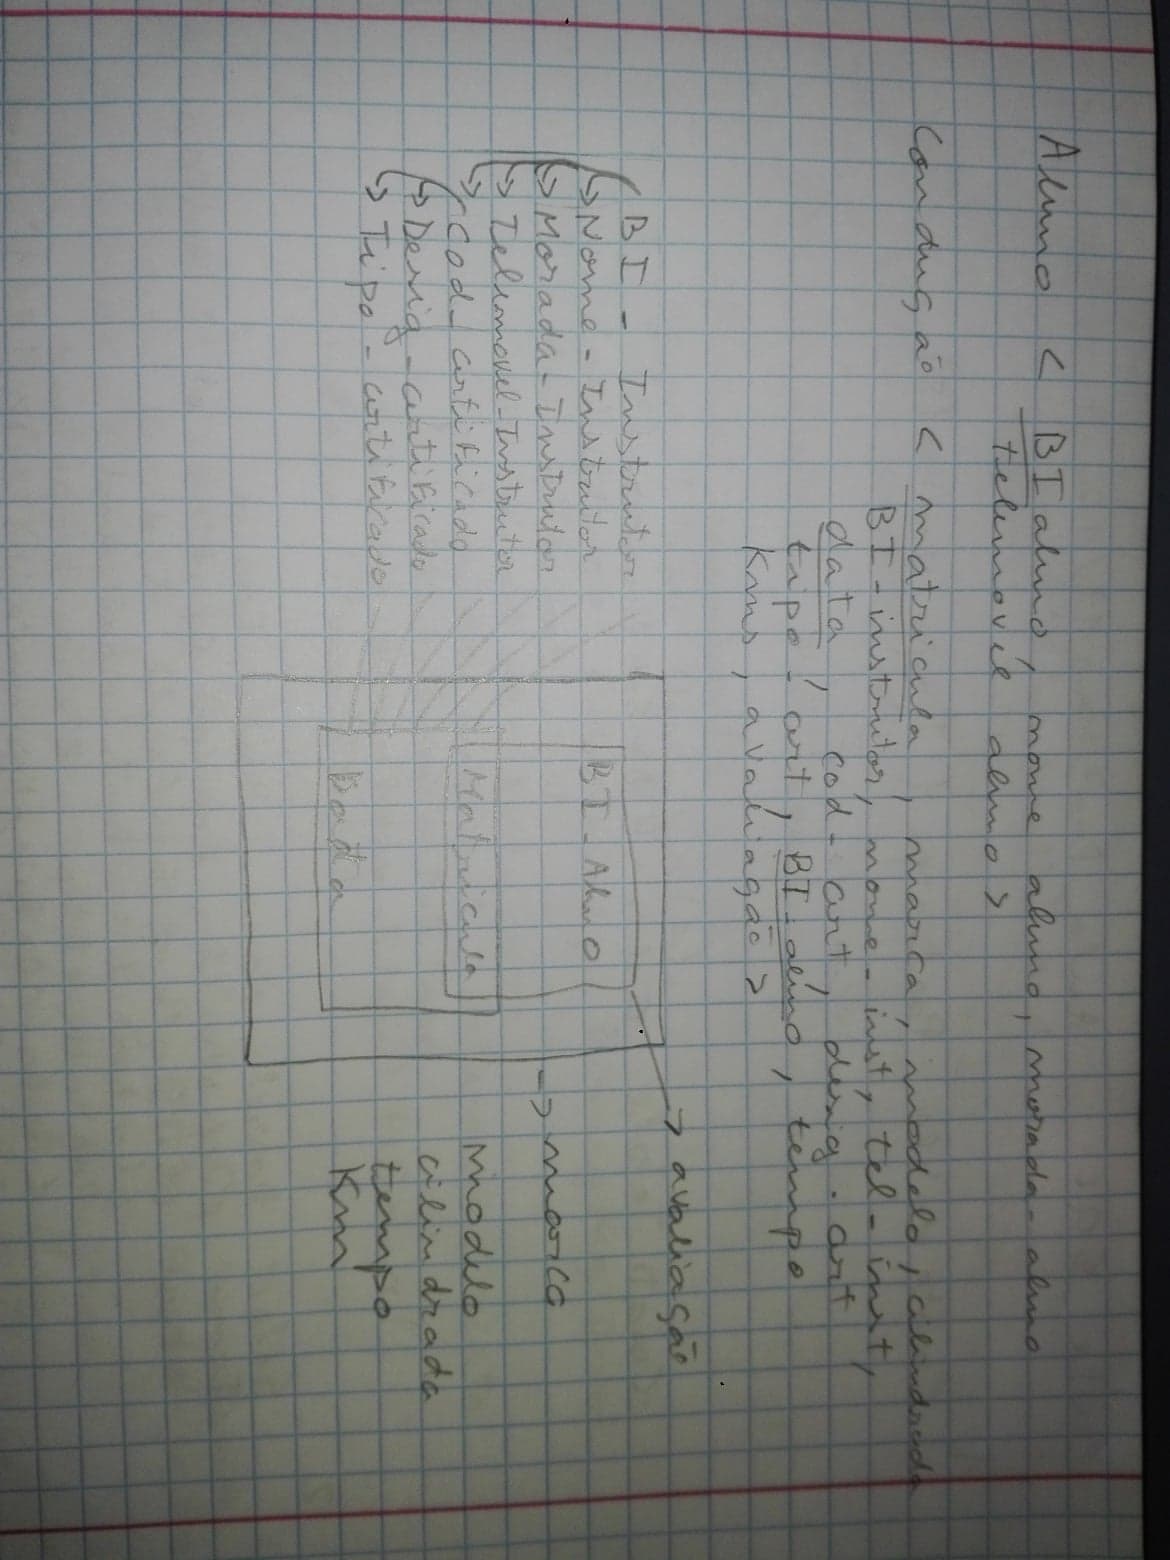 Aluno < BI aluno, nome aluno, morada-aluno
telemovel aluno >
Condução < matricula, marca, modelo, cilindrada
BI-instrutor, nome-inst, tel-inst,
data, cod-art, desig.art
tipo-art, BI-aluno, tempo
Kms, avaliação >
→ avaliação
BI - Instrutor
Nome-Instrutor
Morada-Instrutor
Telemovel-Instrutor
Cod_artificado
Desig-artificado
Tipo-artificado
BI-Aluno
Matricula
Data
→ marca
modelo
cilindrada
tempo
Km